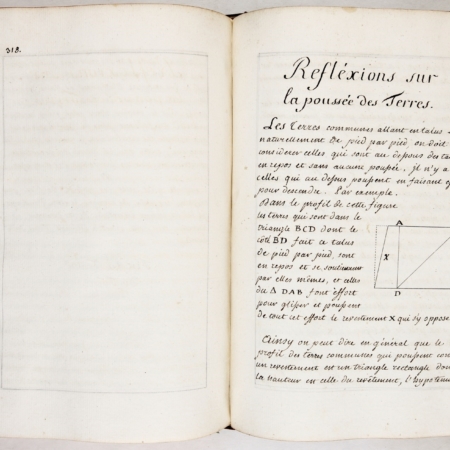 318.
Refléxions sur
la poussée des Terres.
Les Terres communes allant en talus
naturellement de pied par pied, on doit
considerer celles qui sont au dessous des
en repos et sans aucune poussée, il n'y a
celles qui au dessus poussent en faisant
pour descendre. Par exemple.
Dans le profil de cette figure
les terres qui sont dans le
triangle BCD dont le
côté BD fait ce talus
de pied par pied, sont
en repos et se soutiennent
par elles mêmes, et celles
du Δ DAB, font effort
pour glisser et poussent
de tout cet effort le revêtement X qui s'y oppose
A
X
D
Ainsy on peut dire en général que le
profil des terres communes qui poussent
un revêtement est un triangle rectangle
la hauteur en celle du revêtement,